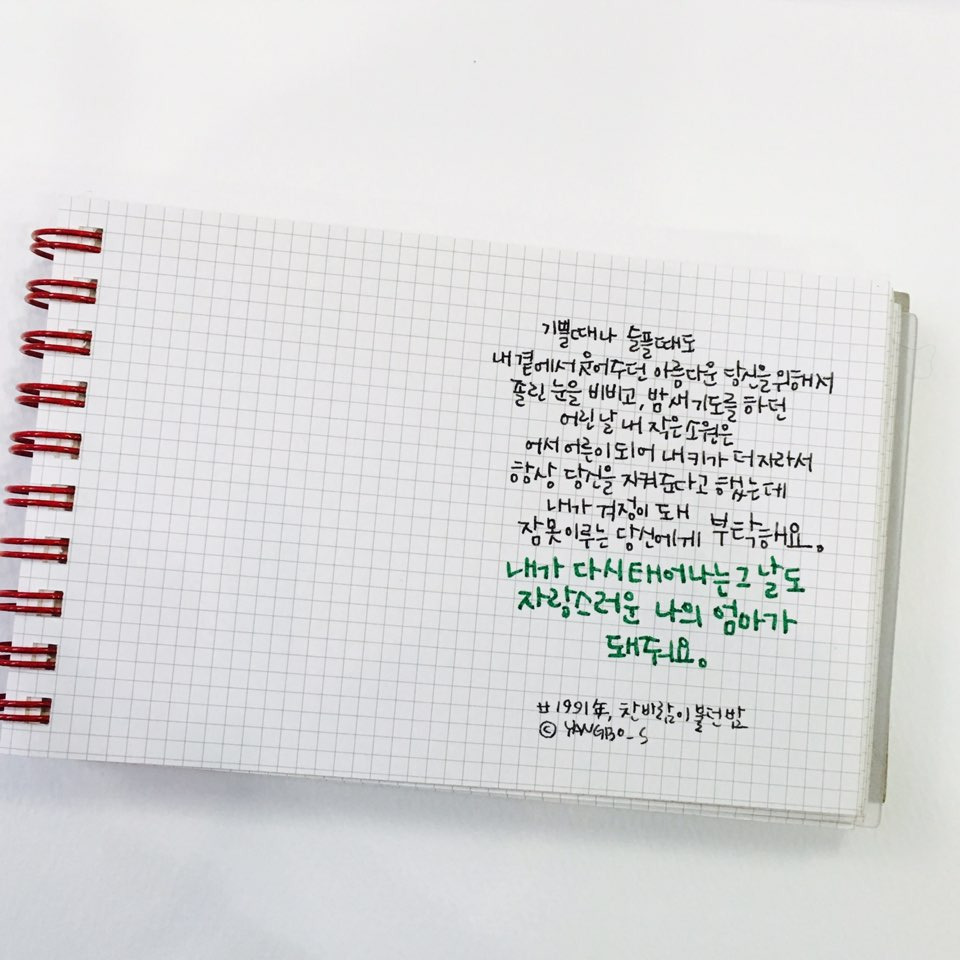 기쁠때나 슬플때도
내 곁에서 웃어주던 아름다운 당신을 위해서
졸린 눈을 비비고, 밤새 기도를 하던
어린 날 내 작은 소원은
어서 어른이 되어 내 키가 더 자라서
항상 당신을 지켜준다고 했는데
내가 걱정이 돼
잠 못 이루는 당신에게 부탁해요.
내가 다시 태어나는 그 날도
자랑스러운 나의 엄마가
돼줘요.
# 1991年, 찬바람이 불던 밤
© YANGBO_S